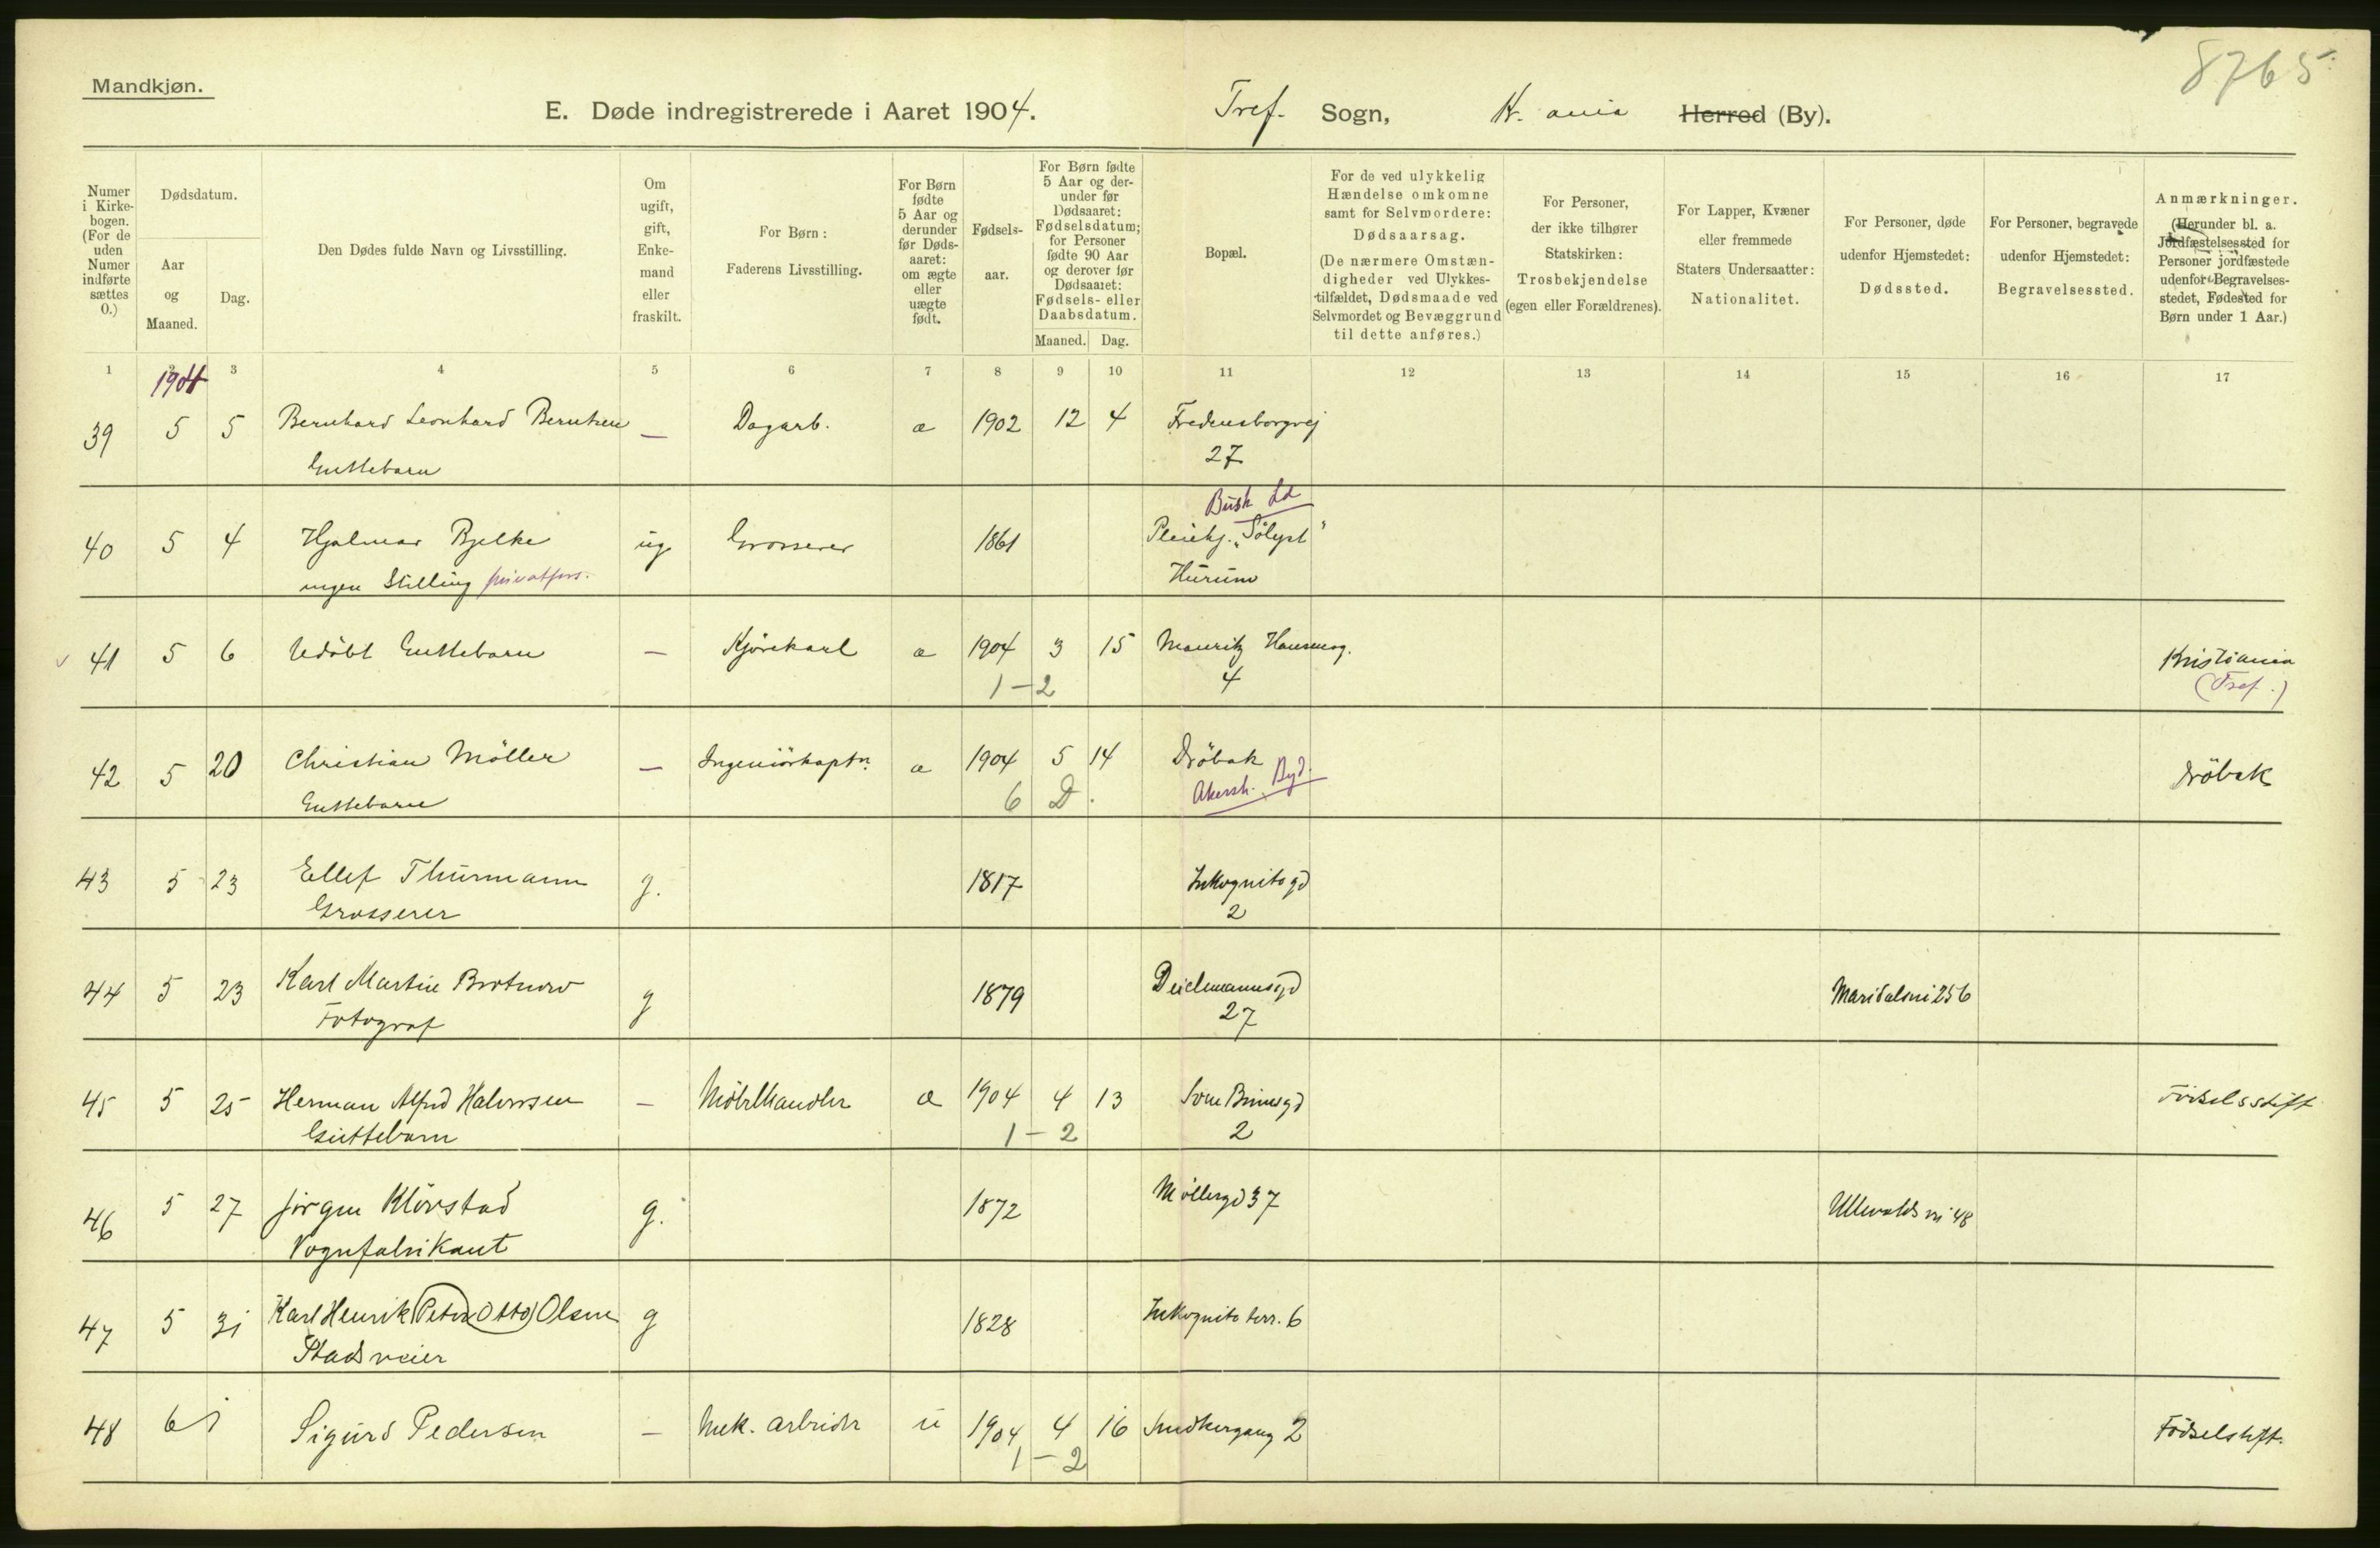 8765
Mandkjøn.
E. Døde indregistrerede i Aaret 1904.
Tref. Sogn, Kr.ania Herred (By).
Numer
i Kirke-
bogen.
(For de
uden
Numer
indførte
sættes
0.)
Dødsdatum.
Aar
og
Maaned.
Dag.
Den Dødes fulde Navn og Livsstilling.
Om
ugift,
gift,
Enke-
mand
eller
fraskilt.
For Børn:
Faderens Livsstilling.
For Børn
fødte
5 Aar og
derunder
før Døds-
aaret:
om ægte
eller
uægte
født.
Fødsels-
aar.
For Børn fødte
5 Aar og der-
under før
Dødsaaret:
Fødselsdatum;
for Personer
fødte 90 Aar
og derover før
Dødsaaret:
Fødsels- eller
Daabsdatum.
Maaned. Dag.
Bopæl.
For de ved ulykkelig
Hændelse omkomne
samt for Selvmordere:
Dødsaarsag.
(De nærmere Omstæn-
digheder ved Ulykkes-
tilfældet, Dødsmaade ved
Selvmordet og Bevæggrund
til dette anføres.)
For Personer,
der ikke tilhører
Statskirken:
Trosbekjendelse
(egen eller Forældrenes).
For Lapper, Kvæner
eller fremmede
Staters Undersaatter:
Nationalitet.
For Personer, døde
udenfor Hjemstedet:
Dødssted.
For Personer, begravede
udenfor Hjemstedet:
Begravelsessted.
Anmærkninger.
(Herunder bl. a.
Jordfæstelsessted for
Personer jordfæstede
udenfor Begravelses-
stedet, Fødested for
Børn under 1 Aar.)
1 2 3 4 5 6 7 8 9 10 11 12 13 14 15 16 17
1904
39 5 5 Bernhard Leonhard Berntsen — Dagarb. æ 1902 12 4 Fredensborgvej
Guttebarn 27
Busk. Ld
40 5 4 Hjalmar Bjelke ug Grosserer 1861 Pleiehj. „Sölyst"
ingen Stilling privatfors. Hurum
41 5 6 Udöbt Guttebarn — Kjörekarl æ 1904 3 15 Mauritz Hansensg. Kristiania
1-2 4 (Tref.)
42 5 20 Christian Möller — Ingeniörkaptn. æ 1904 5 14 Dröbak Dröbak
Guttebarn 6 D. Akersh. Byd.
43 5 23 Ellef Thurmann g. 1817 Inkognitogd
Grosserer 2
44 5 23 Karl Martin Brotnow g 1879 Deichmannsgd Maridalsvei 256
Fotograf 27
45 5 25 Herman Alfred Halvorsen — Möbelhandler æ 1904 4 13 Lars Brunsgd Födselsstift
Guttebarn 1-2 2
46 5 27 Jörgen Klövstad g. 1872 Möllergd 37 Ullevoldsvei 48
Vognfabrikant
47 5 31 Karl Henrik (Peter Otto) Olsen g 1828 Inkognito terr. 6
Stadsveier
48 6 1 Sigurd Pedersen — Mek. arbeider u 1904 4 16 Smedkergang 2 Födselstift.
1-2